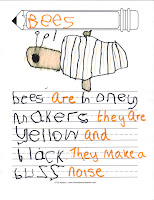 Bees
bees are honey
makers they are
yellow and
black They make a
buzz noise